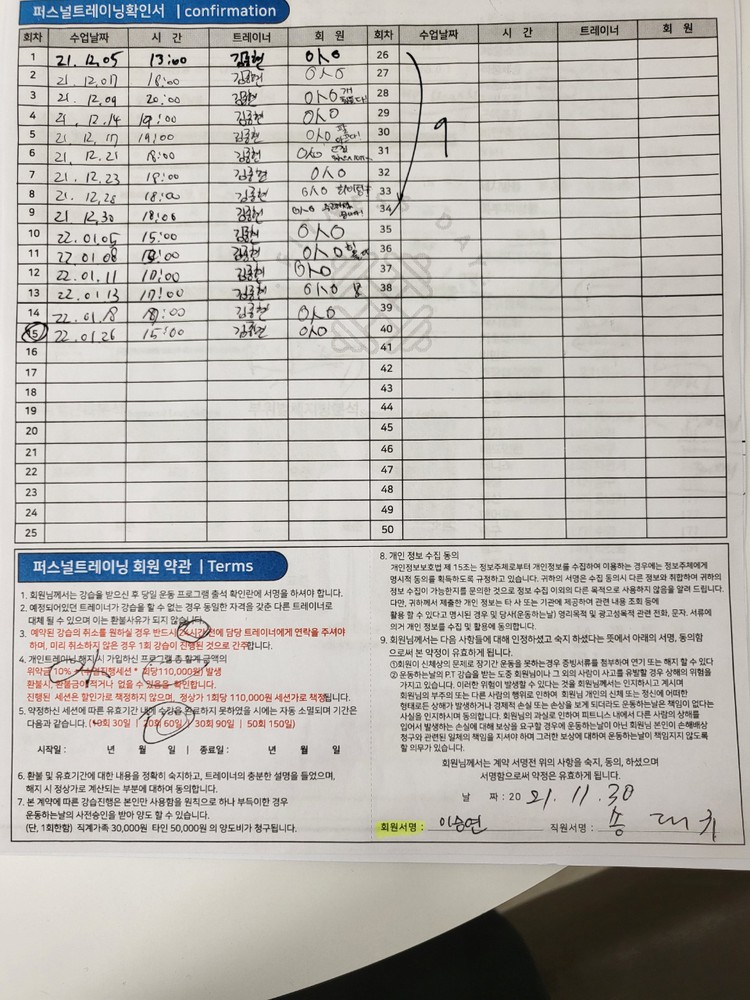 퍼스널트레이닝확인서 | confirmation
회차 수업날짜 시 간 트레이너 회 원 회차 수업날짜 시 간 트레이너 회 원
1 21. 12, 05 13:00 김종현 26
2 21. 12, 07 18:00 김종현 27
3 21. 12, 09 20:00 김종현 28
4 21. 12.14 19:00 김종현 29
5 21. 12, 17 19:00 김종현 30
6 21. 12. 21 18:00 김종현 31
7 21. 12. 23 18:00 김종현 32
8 21. 12, 28 18:00 김종현 33
9 21 12, 30 18:00 김종현 34
9
10 22. 01. 05 15:00 김종현 35
11 22. 01 08 김종현 36
12 22. 01. 11 김종현 37
13 22. 01 13 17:00 김종현 38
14 22. 01. 18 김종현 39
15 22. 01 26 15:00 김종현 40
16 41
17 42
18 43
19 44
20 45
21 46
22 47
23 48
24 49
25 50
퍼스널트레이닝 회원 약관 | Terms
1. 회원님께서는 강습을 받으신 후 당일 운동 프로그램 출석 확인란에 서명을 하셔야 합니다.
2. 예정되어있던 트레이너가 강습을 할 수 없는 경우 동일한 자격을 갖춘 다른 트레이너로
대체 될 수 있으며 이는 환불사유가 되지 않습니다.
3. 예약된 강습의 취소를 원하실 경우 반드시 24시간 전에 담당 트레이너에게 연락을 주셔야
하며, 미리 취소하지 않은 경우 1회 강습이 진행된 것으로 간주합니다.
4. 개인트레이닝 해지 시 가입하신 프로그램 총 합계 금액의
위약금 10% 진행세션 * 회당110,000원) 발생
환불시, 환불금이 적거나 없을 수 있음을 확인합니다.
진행된 세션은 할인가로 책정하지 않으며, 정상가 1회당 110,000원 세션가로 책정됩니다.
5. 약정하신 세션에 따른 유효기간 내에 수강을 완료하지 못하였을 시에는 자동 소멸되며 기간은
다음과 같습니다. (10회 30일 | 20회 60일 | 30회 90일 | 50회 150일)
시작일 : 년 월 일 | 종료일 : 년 월 일
6. 환불 및 유효기간에 대한 내용을 정확히 숙지하고, 트레이너의 충분한 설명을 들었으며,
해지 시 정상가로 계산되는 부분에 대하여 동의합니다.
7. 본 계약에 따른 강습진행은 본인만 사용함을 원칙으로 하나 부득이한 경우
운동하는날의 사전승인을 받아 양도 할 수 있습니다.
(단, 1회한함) 직계가족 30,000원 타인 50,000원 의 양도비가 청구됩니다.
8. 개인 정보 수집 동의
개인정보보호법 제 15조는 정보주체로부터 개인정보를 수집하여 이용하는 경우에는 정보주체에게
명시적 동의를 획득하도록 규정하고 있습니다. 귀하의 서명은 수집 동의시 다른 정보와 취합하여 귀하의
정보 수집이 가능한지를 문의한 것으로 정보 수집 이외의 다른 목적으로 사용하지 않음을 알려 드립니다.
다만, 귀하께서 제출한 개인 정보는 타 사 또는 기관에 제공하여 관련 내용 조회 등에
활용 할 수 있다고 명시된 경우 및 당사(운동하는날) 영리목적 및 광고성목적 관련 전화, 문자. 서류에
의거 개인 정보를 수집 및 활용에 동의합니다.
9. 회원님께서는 다음 사항들에 대해 인정하셨고 숙지 하셨다는 뜻에서 아래의 서명, 동의함
으로써 본 약정이 유효하게 됩니다.
①회원이 신체상의 문제로 장기간 운동을 못하는경우 증빙서류를 첨부하여 연기 또는 해지 할 수 있다
② 운동하는날의 P.T 강습을 받는 도중 회원님이나 그 외의 사람이 사고를 유발할 경우 상해의 위험을
가지고 있습니다. 이러한 위험이 발생할 수 있다는 것을 회원님께서는 인지하시고 계시며
회원님의 부주의 또는 다른 사람의 행위로 인하여 회원님 개인의 신체 또는 정신에 어떠한
형태로든 상해가 발생하거나 경제적 손실 또는 손상을 보게 되더라도 운동하는날은 책임이 없다는
사실을 인지하시며 동의합니다. 회원님의 과실로 인하여 피트니스 내에서 다른 사람의 상해를
입어서 발생하는 손실에 대해 보상을 요구할 경우에 운동하는날이 아닌 회원님 본인이 손해배상
청구와 관련된 일체의 책임을 지셔야 하며 그러한 보상에 대하여 운동하는날이 책임지지 않도록
할 의무가 있습니다.
회원님께서는 계약 서명전 위의 사항을 숙지, 동의, 하셨으며
서명함으로써 약정은 유효하게 됩니다.
날 짜 : 20 21. 11. 30
회원서명 : 이승연 직원서명 : 송